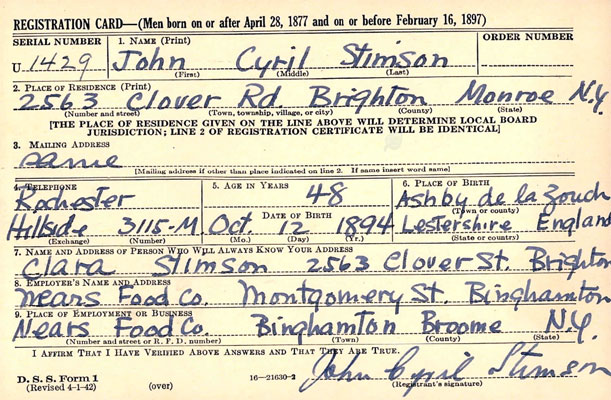 REGISTRATION CARD—(Men born on or after April 28, 1877 and on or before February 16, 1897)
SERIAL NUMBER 1. NAME (Print) ORDER NUMBER
U 1429 John Cyril Stimson
(First) (Middle) (Last)
2. PLACE OF RESIDENCE (Print)
2563 Clover Rd. Brighton Monroe N.Y.
(Number and street) (Town, township, village, or city) (County) (State)
[THE PLACE OF RESIDENCE GIVEN ON THE LINE ABOVE WILL DETERMINE LOCAL BOARD
JURISDICTION; LINE 2 OF REGISTRATION CERTIFICATE WILL BE IDENTICAL]
3. MAILING ADDRESS
same
[Mailing address if other than place indicated on line 2. If same insert word same]
4. TELEPHONE 5. AGE IN YEARS 6. PLACE OF BIRTH
Rochester 48 Ashby de la Zouch
DATE OF BIRTH (Town or county)
Hillside 3115-M Oct. 12 1894 Lestershire England
(Exchange) (Number) (Mo.) (Day) (Yr.) (State or country)
7. NAME AND ADDRESS OF PERSON WHO WILL ALWAYS KNOW YOUR ADDRESS
Clara Stimson 2563 Clover St. Brighton
8. EMPLOYER'S NAME AND ADDRESS
Mears Food Co. Montgomery St. Binghamton
9. PLACE OF EMPLOYMENT OR BUSINESS
Nears Food Co. Binghamton Broome N.Y.
(Number and street or R. F. D. number) (Town) (County) (State)
I AFFIRM THAT I HAVE VERIFIED ABOVE ANSWERS AND THAT THEY ARE TRUE.
John Cyril Stimson
D. S. S. Form 1 16—21630-2 (Registrant's signature)
(Revised 4-1-42) (over)